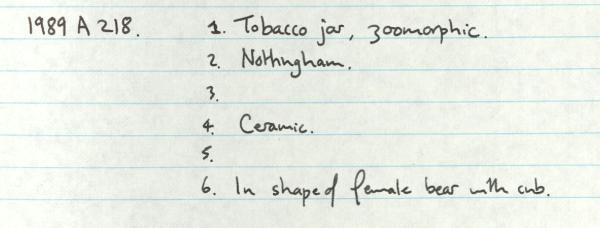 1989 A 218. 1. Tobacco jar, zoomorphic.
2. Nottingham.
3.
4. Ceramic.
5.
6. In shape of female bear with cub.